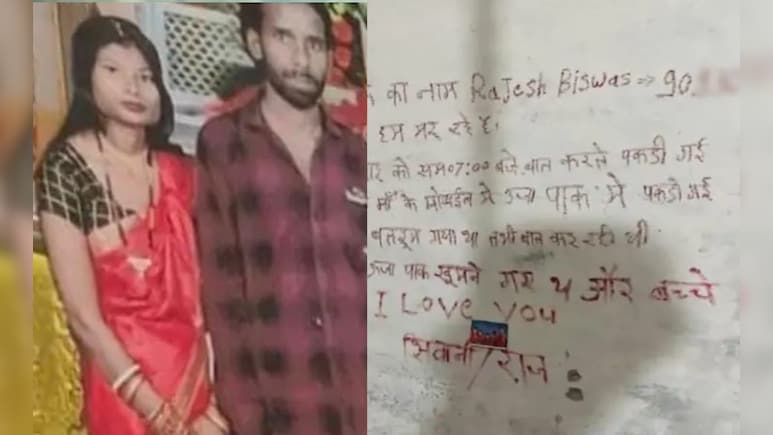 का नाम Rajesh Biswas => 90
हम मर रहे है।
को सम 07:00 बजे बात करते पकडी गई
माँ के मोबाईल मे उर्जा पार्क मे पकडी गई
बाथरूम गया था तभी बात कर रही थी
उर्जा पार्क घूमने गए थे और बच्चे
I Love You
शिवानी/राज